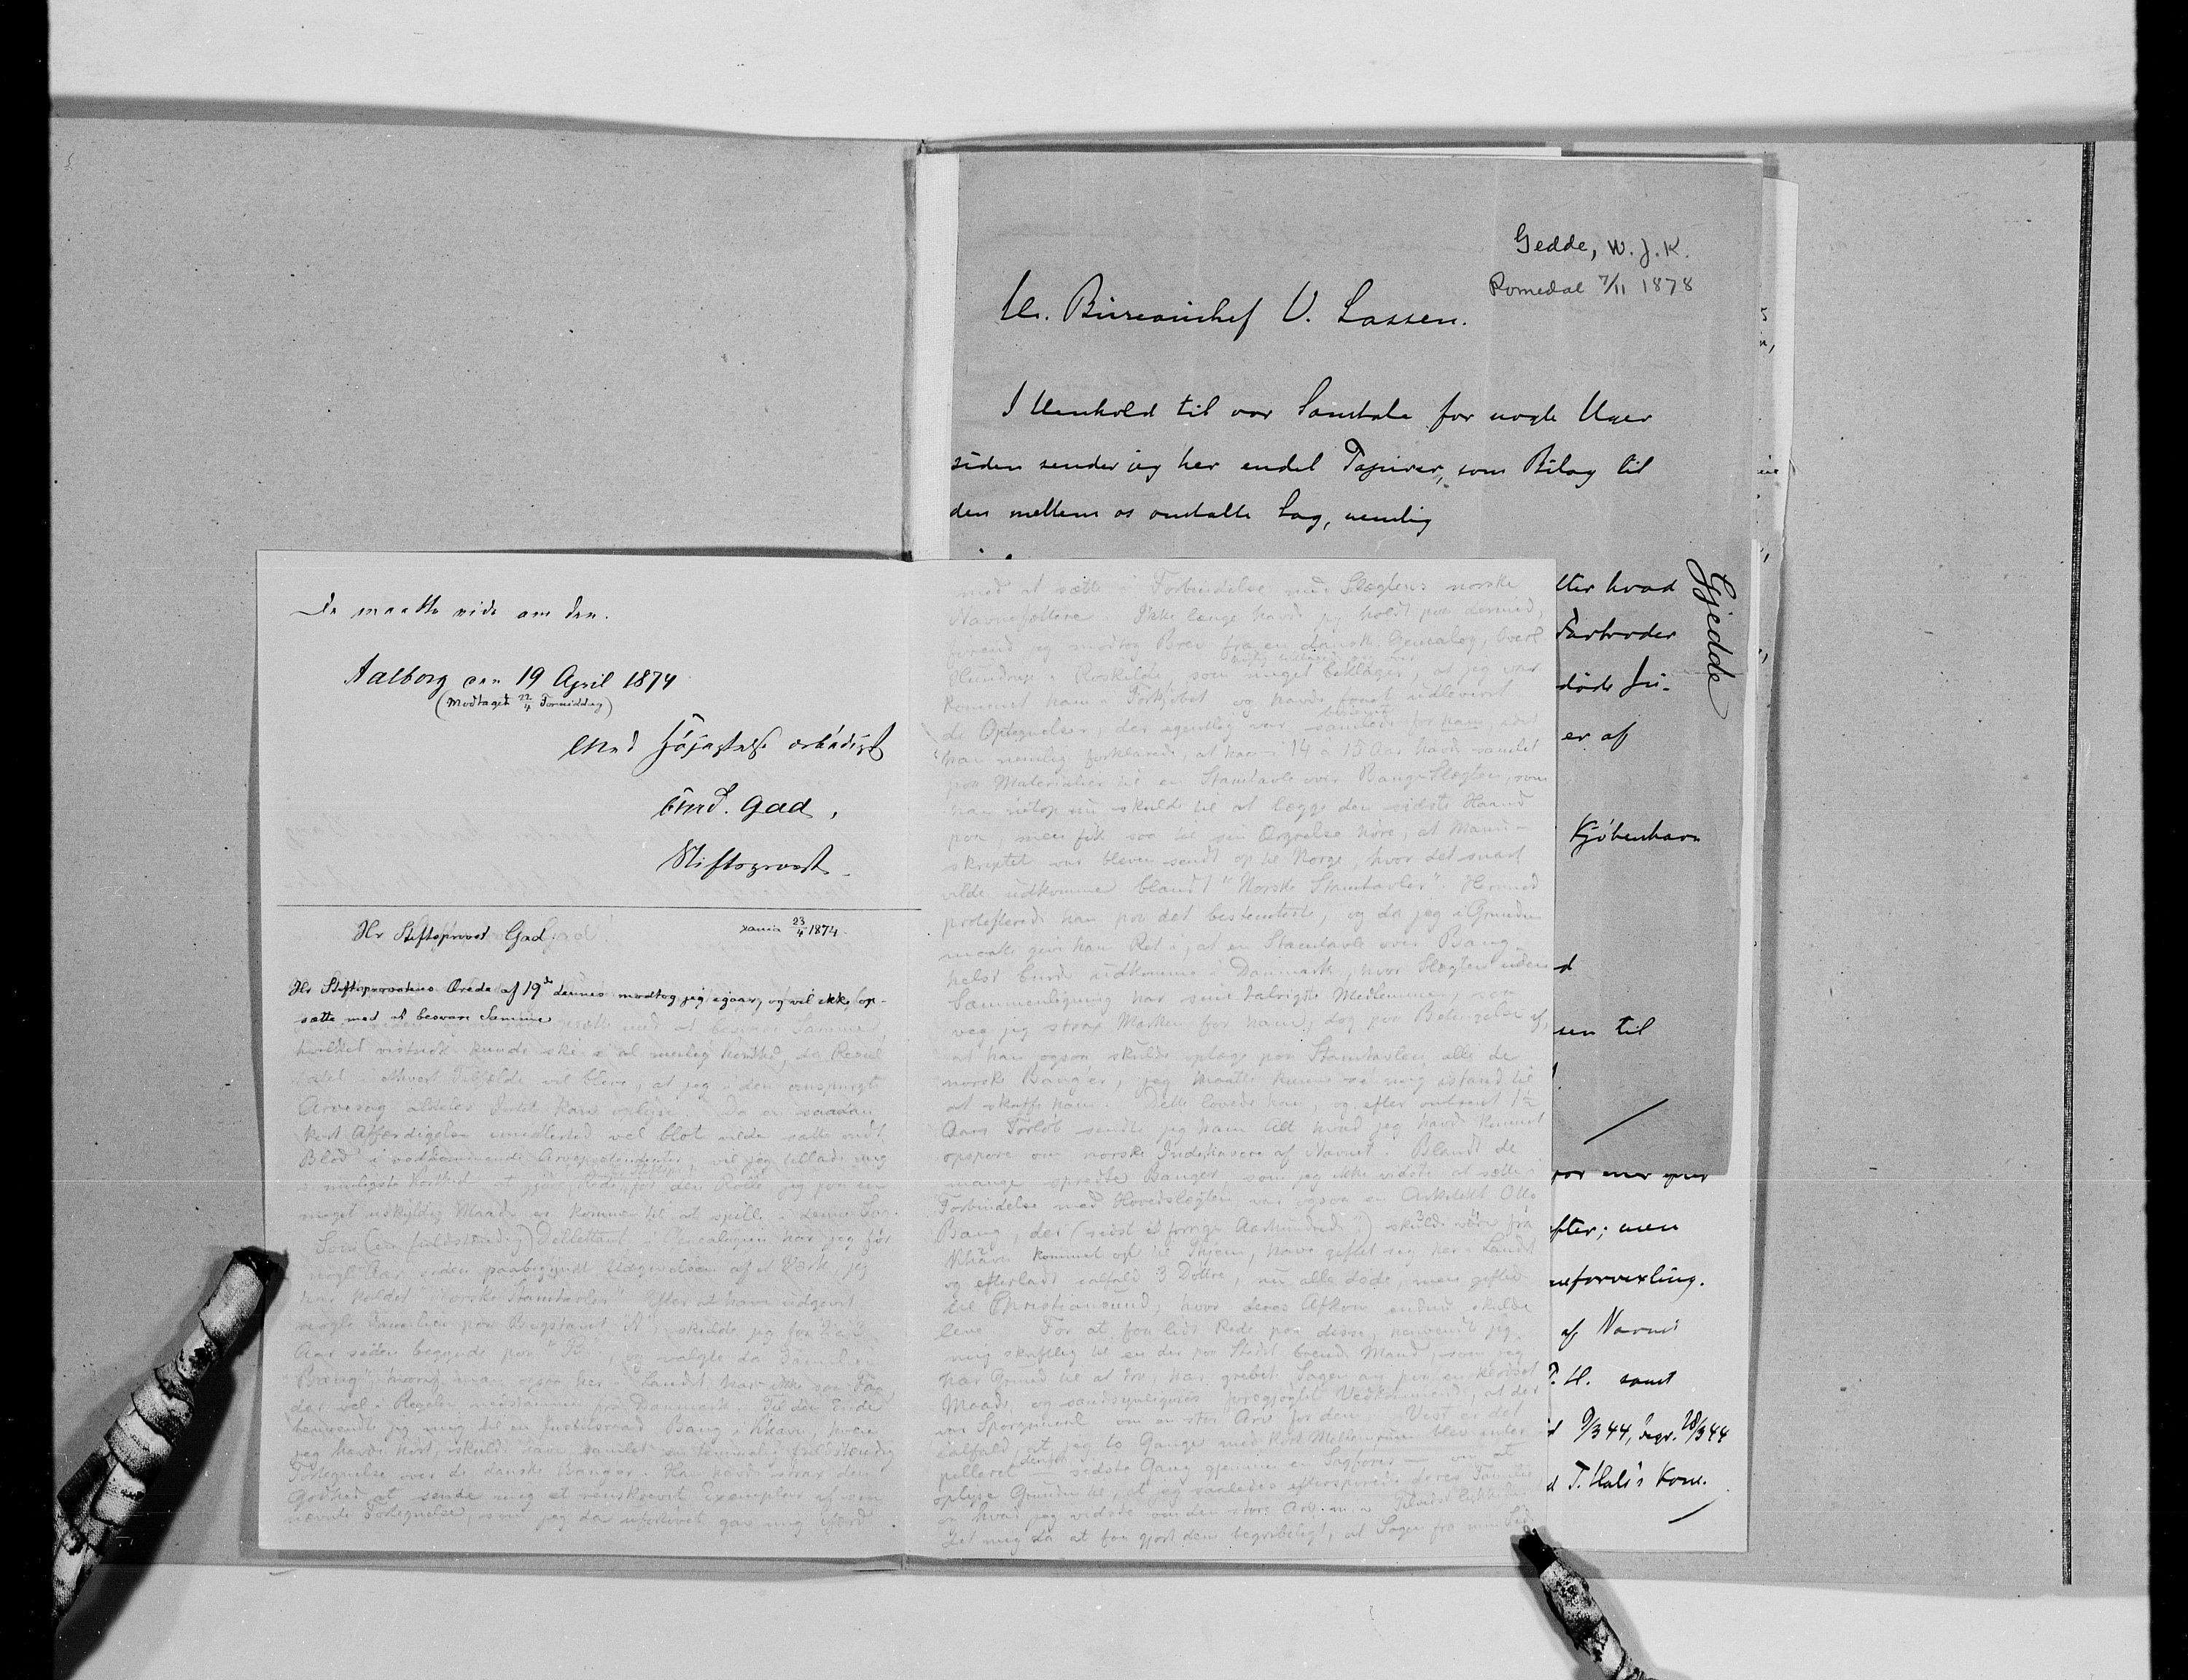 Gedde, W. J. K.
Romedal 7/11 1878
Hr. Bureauchef V. Lassen.
I Henhold til vor Samtale for nogle Uger
siden sender jeg her endel Papirer, som Bilag til
den mellem os omtalte Sag, nemlig
Gjedde
tter hvad
Farbroder
døde
er af
Kjøbenhavn
d
sen til
efter; men
neforvexling.
af Navnet
P. H. samt
9/3 44, begr. 18/3 44
d T. Hals's Kone.
De maatte vide om den.
Aalborg den 19 April 1874
(Modtaget 22/4 Formiddag)
Med Høiagtelse ærbødigst
Emd. Gad,
Stiftsprovst.
Hr Stiftsprovst Gad.
xania 23/4 1874.
Hr Stiftsprovstens Ærede af 19de dennes modtog jeg igaar, og vil ikke op-
sætte med at besvare Samme
hvilket vistnok kunde ske i al mulig Korthed, da Resul
tatet i ethvert Tilfælde vil blive, at jeg i den omspurgte
Arvesag aldeles Intet kan oplyse. Da en saadan
kort Affærdigelse imidlertid vel blot vilde sætte ondt
Blod i vedkommende Arveprætendenter, vil jeg tillade mig
i muligste Korthed at gjøre Rede for den Rolle jeg paa en
meget uskyldig Maade er kommen til at spille i denne Sag.
Som (en fuldstændig) Dilettant i Genealogien har jeg for
nogle Aar siden paabegyndt Udgivelsen af et Værk, jeg
har kaldet "Norske Stamtavler". Efter at have udgivet
nogle Familier paa Bogstavet A, skulde jeg for
Aar siden begynde paa "B", og valgte da Familien
"Bang", hvoraf man ogsaa her i Landet har ikke saa Faa
der vel i Regelen nedstamme fra Danmark. Til den Ende
henvendte jeg mig til en Justitsraad Bang i Khavn, hvem
jeg havde hørt, skulde have samlet en temmelig fuldstændig
Fortegnelse over de danske Banger. Han havde strax den
Godhed at sende mig et renskrevet Exemplar af som
nævnte Fortegnelse, som jeg da ufortøvet gav mig ifærd
med at sætte i Forbindelse med Slægtens norske
Navnefættere. Ikke længe havde jeg holdt paa dermed,
førend jeg modtog Brev fra en dansk Genealog, Overl
Hundrup i Roskilde, som meget beklager, at jeg var
kommet ham i Forkjøbet og havde faaet udleveret
de Optegnelser, der egentlig var samlede for ham, idet
han nemlig forklarede, at han i 14 a 15 Aar havde samlet
paa Materialier til en Stamtavle over Bange Slægten, som
han netop nu skulde til at lægge den sidste Haand
paa, men fik saa til sin Ærgrelse høre, at Manu-
skriptet var bleven sendt op til Norge, hvor det snart
vilde udkomme blandt "Norske Stamtavler". Hermod
protesterede han paa det bestemteste, og da jeg i Grunden
maatte give ham Ret i, at en Stamtavle over Bang
helst burde udkomme i Danmark, hvor Slægten uden
Sammenligning har sine talrigste Medlemmer, saa
veg jeg strax Marken for ham, dog paa Betingelse af,
at han ogsaa skulde optage paa Stamtavlen alle de
norske Bang'er, jeg maatte kunne se mig istand til
at skaffe ham. Dette lovede han, og efter omtrent 1½
Aars Forløb sendte jeg ham Alt hvad jeg havde kunnet
opspore om norske Indehavere af Navnet. Blandt de
mange spredte Banger, som jeg ikke vidste at sætte i
Forbindelse med Hovedslægten var ogsaa en Arkitekt Otto
Bang, der (sidst i forrige Aarhundrede?) skulde være fra
Khavn kommet op til Thjem, have giftet sig her i Landet
og efterladt ialfald 3 Døttre, nu alle døde, men giftede
til Christiansund, hvor deres Afkom endnu skulde
leve. For at faa lidt Rede paa disse, henvendte jeg
mig skriftlig til en der paa Stedet boende Mand, som jeg
har Grund til at tro, har grebet Sagen an paa en keitet
Maade, og sandsynligvis foregjøglet Vedkommende, at der
var Spørgsmaal om en stor Arv for dem. Vist er det
ialfald at jeg to Gange med kort Mellemrum blev inter
pelleret - sidste Gang gjennem en Sagfører - om at
oplyse Grunden til, at jeg saaledes efterspurgte deres Familie
og hvad jeg vidste om den store Arv.
det mig da at faa gjort dem begribeligt, at Sagen fra min Side